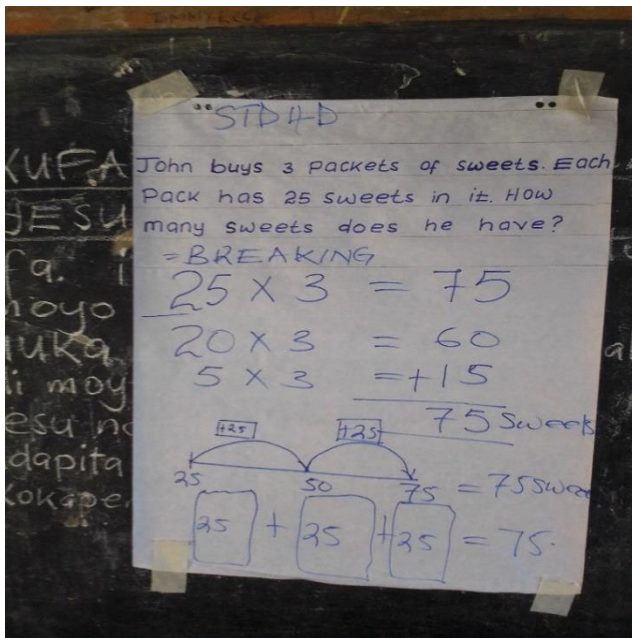 STD 4D
John buys 3 Packets of sweets. Each
Pack has 25 sweets in it. How
many sweets does he have?
= BREAKING
25 × 3 = 75
20 × 3 = 60
5 × 3 = +15
75 Sweets
+25 +25
25 50 75 = 75 swee
25 + 25 + 25 = 75.
KUFA
JESU
fa. i
moyo
uka
li moy
esu no
dapita
kokape